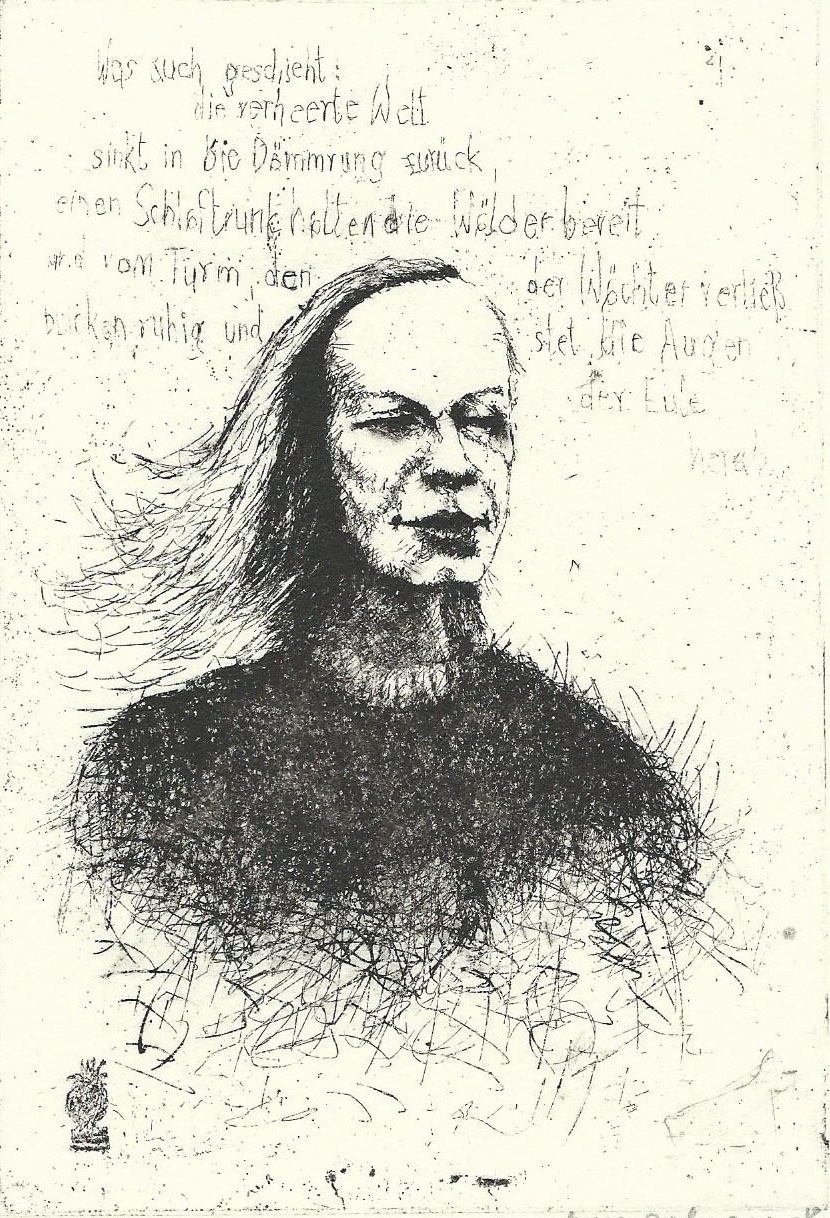 Was auch geschieht:
die verheerte Welt
sinkt in die Dämmrung zurück,
einen Schlaftrunk halten die Wälder bereit
und vom Turm, den der Wächter verließ
blicken ruhig und stet die Augen
der Eule
herab.